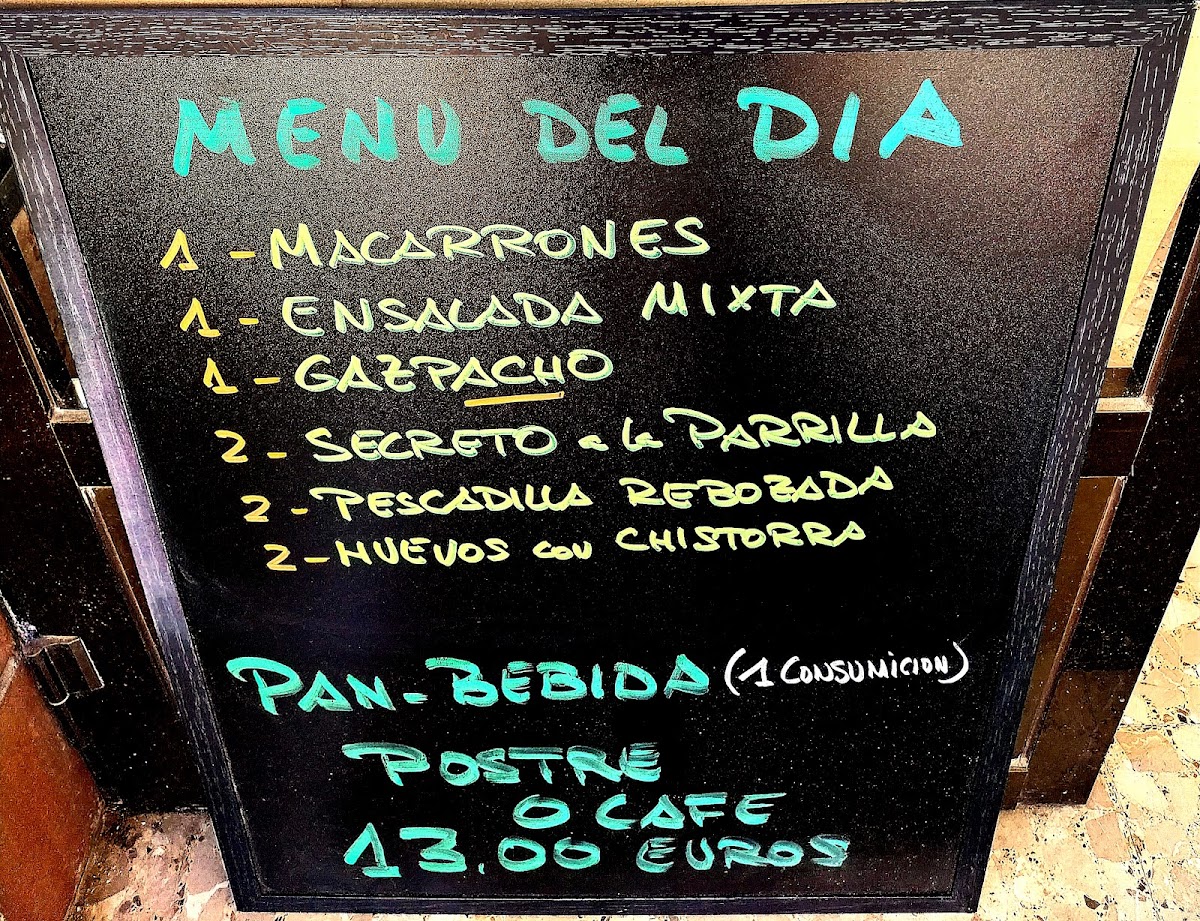 MENU DEL DIA
1 - MACARRONES
1 - ENSALADA MIXTA
1 - GAZPACHO
2 - SECRETO a la PARRILLA
2 - PESCADILLA REBOZADA
2 - HUEVOS con CHISTORRA
PAN - BEBIDA (1 CONSUMICION)
POSTRE
O CAFE
13.00 EUROS